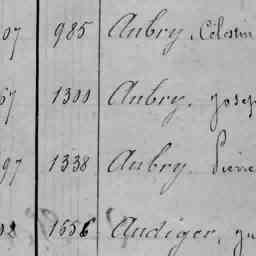 07 985 Aubry, Célestin
57 1300 Aubry, Josep
97 1338 Aubry Pierre
02 1656 Audiger,